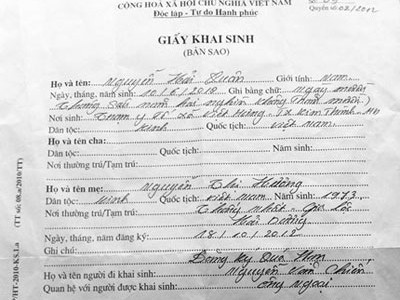 CỘNG HOÀ XÃ HỘI CHỦ NGHĨA VIỆT NAM
Độc lập - Tự do Hạnh phúc
Số
Quyển số 02/2012
GIẤY KHAI SINH
(BẢN SAO)
Họ và tên: Nguyễn Hải Giới tính: Nam
Ngày, tháng, năm sinh: 10/6/2018 Ghi bằng chữ: Ngày mười
tháng sáu năm hai nghìn không trăm mười
Nơi sinh: Trạm y tế xã Việt Hưng
Dân tộc: Kinh Quốc tịch: Việt Nam
Họ và tên cha:
Dân tộc: Quốc tịch: Năm sinh:
Nơi thường trú/Tạm trú:
Họ và tên mẹ: Nguyễn Thị Hường
Dân tộc: Kinh Quốc tịch: Việt Nam Năm sinh: 1973
Nơi thường trú/Tạm trú: Thống Nhất - Gia Lộc
Hải Dương
Ngày, tháng, năm đăng ký: 18/10/2018
Ghi chú: Đăng ký Quá Hạn
Họ và tên người đi khai sinh: Nguyễn Văn
Quan hệ với người được khai sinh: Ông ngoại
(TT số: 08.a/2010/TT)
HT-2010-KS.1.a